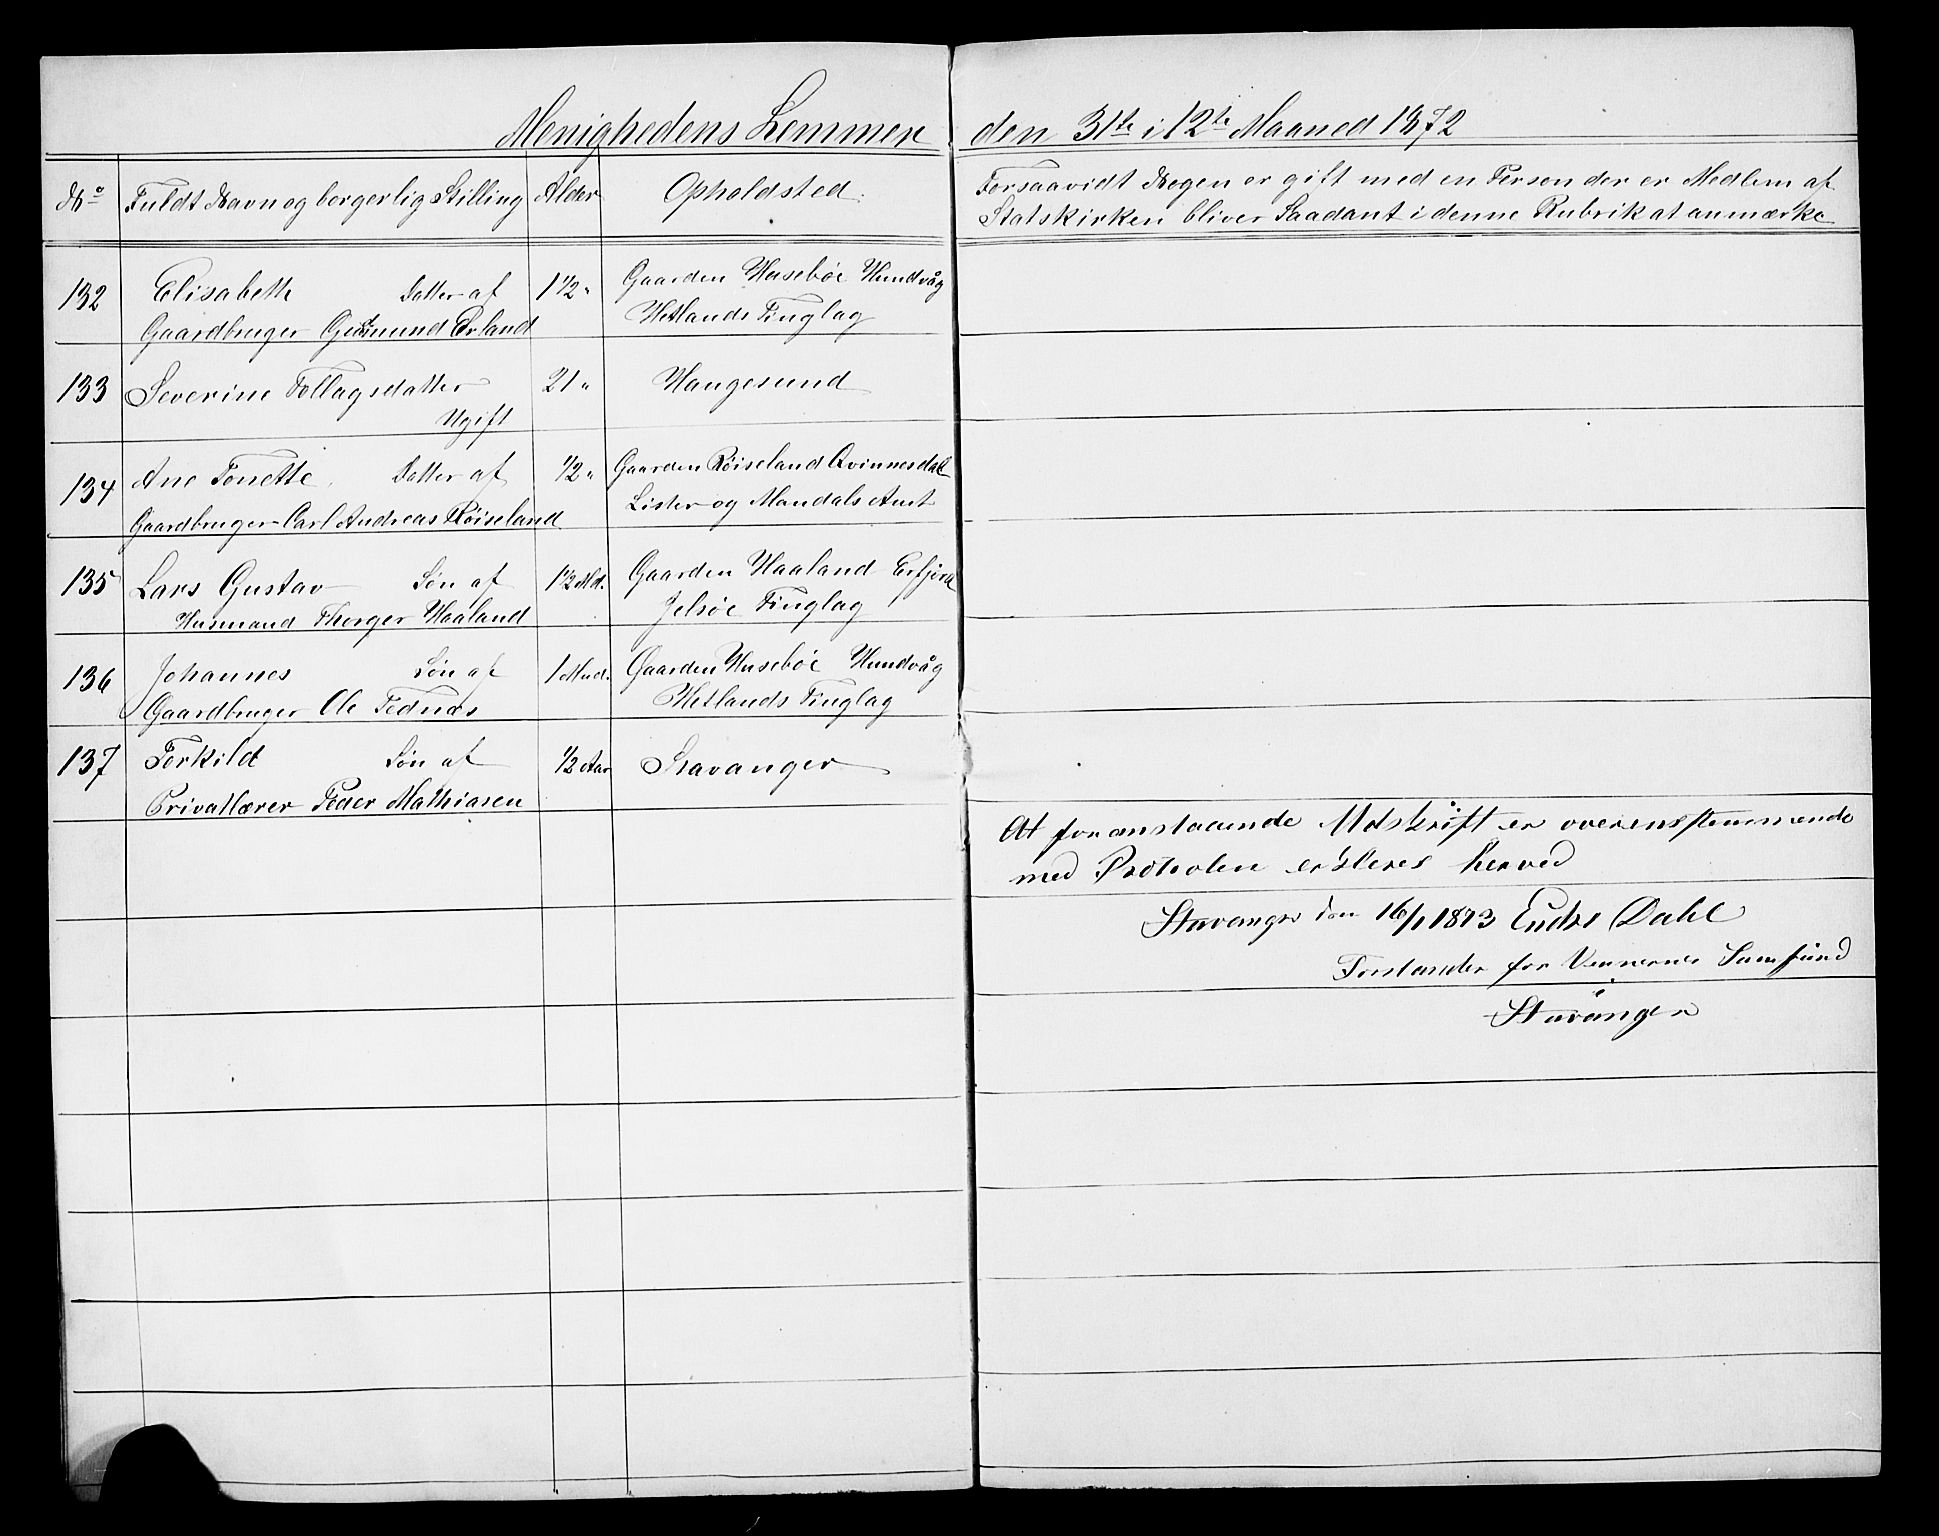 Menighedens Lemmer den 31te i 12te Maaned 1872
No Fuldt Navn og borgerlig Stilling Alder Opholdsted. Forsaavidt Nogen er gift med en Person der er Medlem af
Statskirken bliver Saadant i denne Rubrik at anmærke
132 Elisabeth Datter af 1 1/2 " Gaarden Husebøe Hundvåg
Gaardbruger Gudmund Erland Hetlands Tinglag
133 Severine Tollagsdatter 21 " Haugesund
Ugift
134 Ane Tonette Datter af 1/2 " Gaarden Røiseland Qvinnesdal
Gaardbruger Carl Andreas Røiseland Lister og Mandals Amt
135 Lars Gustav Søn af 1 1/2 Md. Gaarden Haaland Erfjord
Husmand Thorger Haaland Jelsøe Tinglag
136 Johannes Søn af 1 Mnd. Gaarden Husebøe Hundvåg
Gaardbruger Ole Tednæs Hetlands Tinglag
137 Terkild Søn af 1/2 Aar Stavanger
Privatlærer Peder Mathiasen
At foranstaaende Udskrift er overensstemmende
med Protocolen erkleres herved
Stavanger den 16/1 1873 Endre Dahl
Forstander for Vennernes Samfund
Stavanger